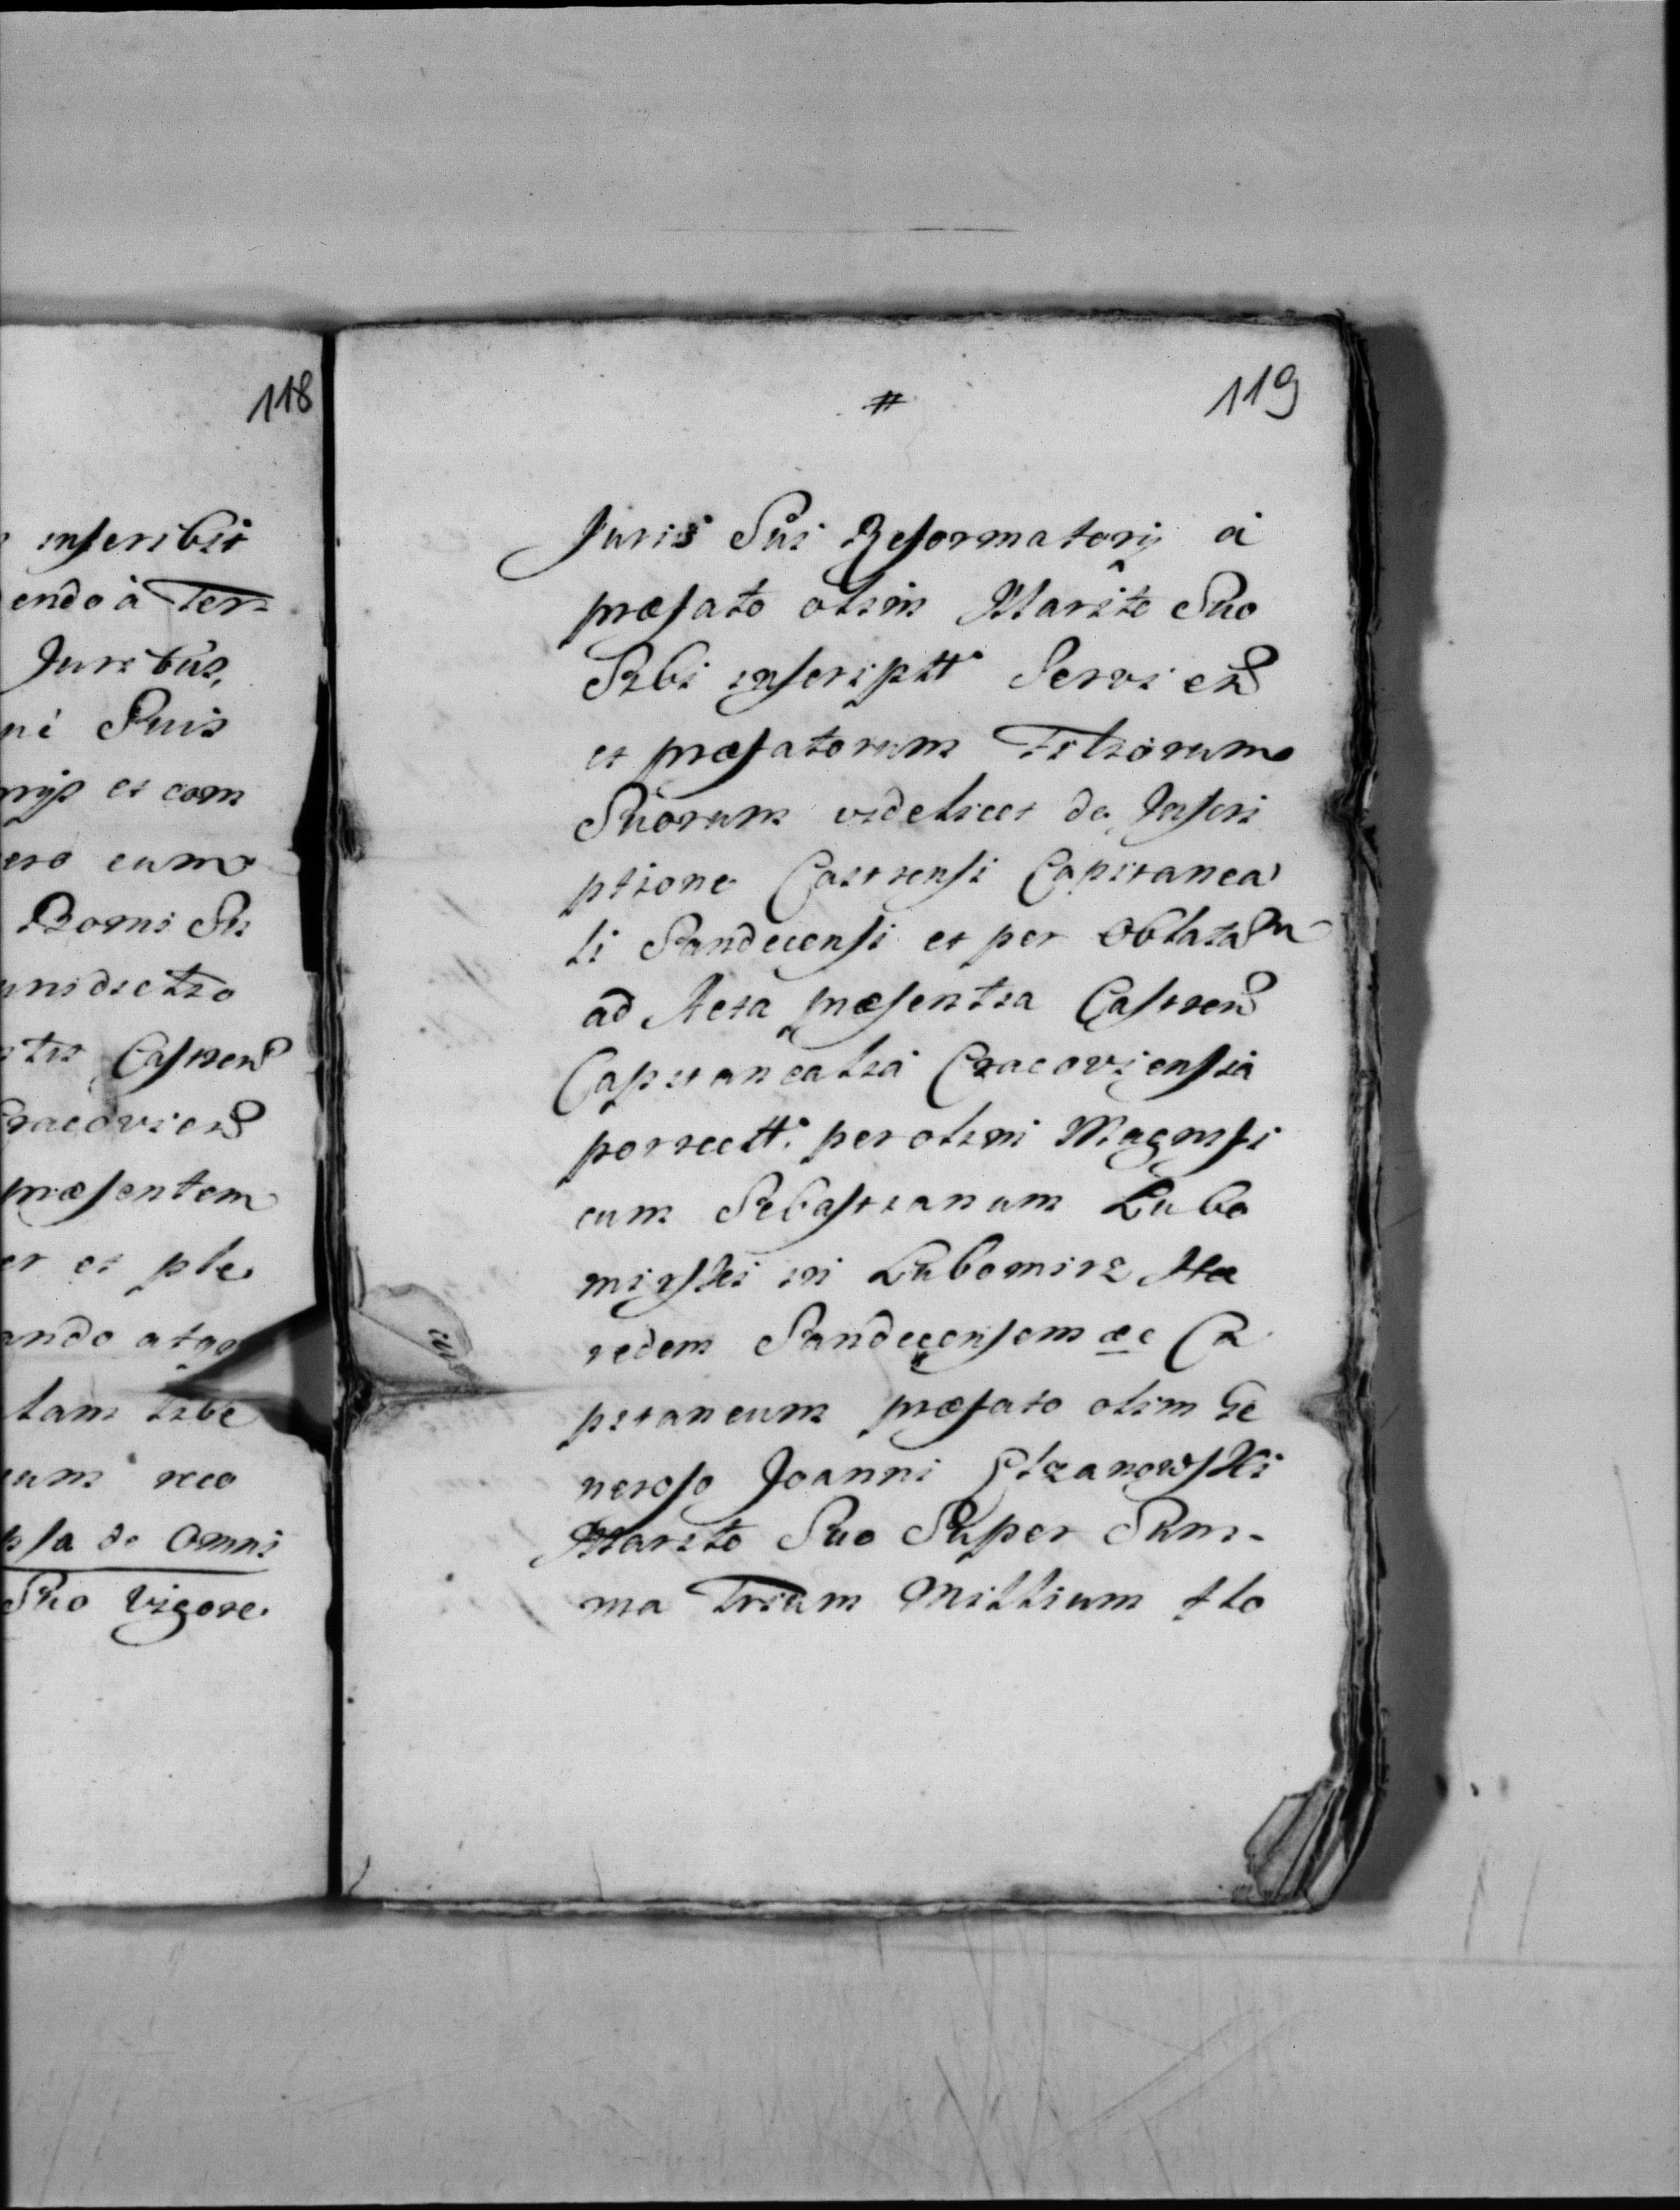 118
inscribit
endo à Ter=
Juribus,
Suis
et com
cum
Boni Su
Castren
Cracovien
præsentem
et ple
ando atqe
tam libe
reco
psa de Omni
Suo Vigore
#
119
Juris Sui Reformatorij à
præfato olim Marito Suo
Sibi inscriptt: Servien
et præfatorum Filiorum
Suorum videlicet de Inscri
ptione Castrensi Capitanea
li Sandecensi et per Oblatam
ad Acta præsentia Castren
Capitanealia Cracoviensia
porrectt: per olim Magnifi
cum Sebastianum Lubo
mirski in Lubomirz Hæ
redem Sandecensem ac Ca
pitaneum præfato olim Ge
neroso Joanni
Marito Suo Super Sum-
ma Trium Millium flo